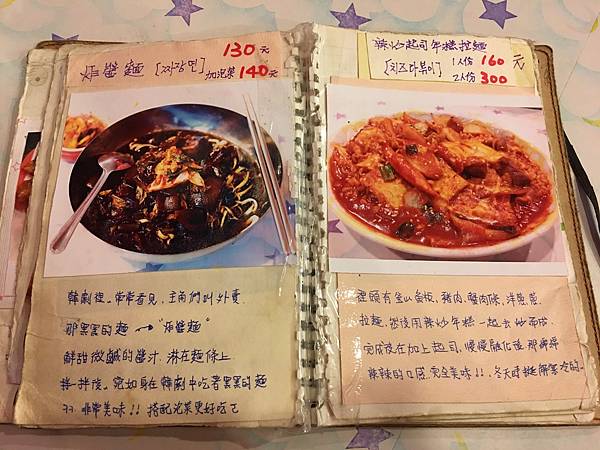 130元
炸醬麵 [짜장면] 加泡菜 140元
韓劇裡。常常看見,主角們叫外賣
那黑黑的麵 → "炸醬麵"
鮮甜微鹹的醬汁.淋在麵條上
拌一拌後。宛如身在韓劇中吃著黑黑的麵
ㄡㄡ.非常美味!! 搭配泡菜更好吃
辣炒起司年糕拉麵
[치즈라볶이] 1人份 160元
2人份 300
裡頭有 豬肉.蟹肉條.洋蔥
拉麵.然後用辣炒年糕一起去炒而成
完成後在加上起司.慢慢融化後
辣辣的口感.完全美味!!.冬天時挺解寒冷的。